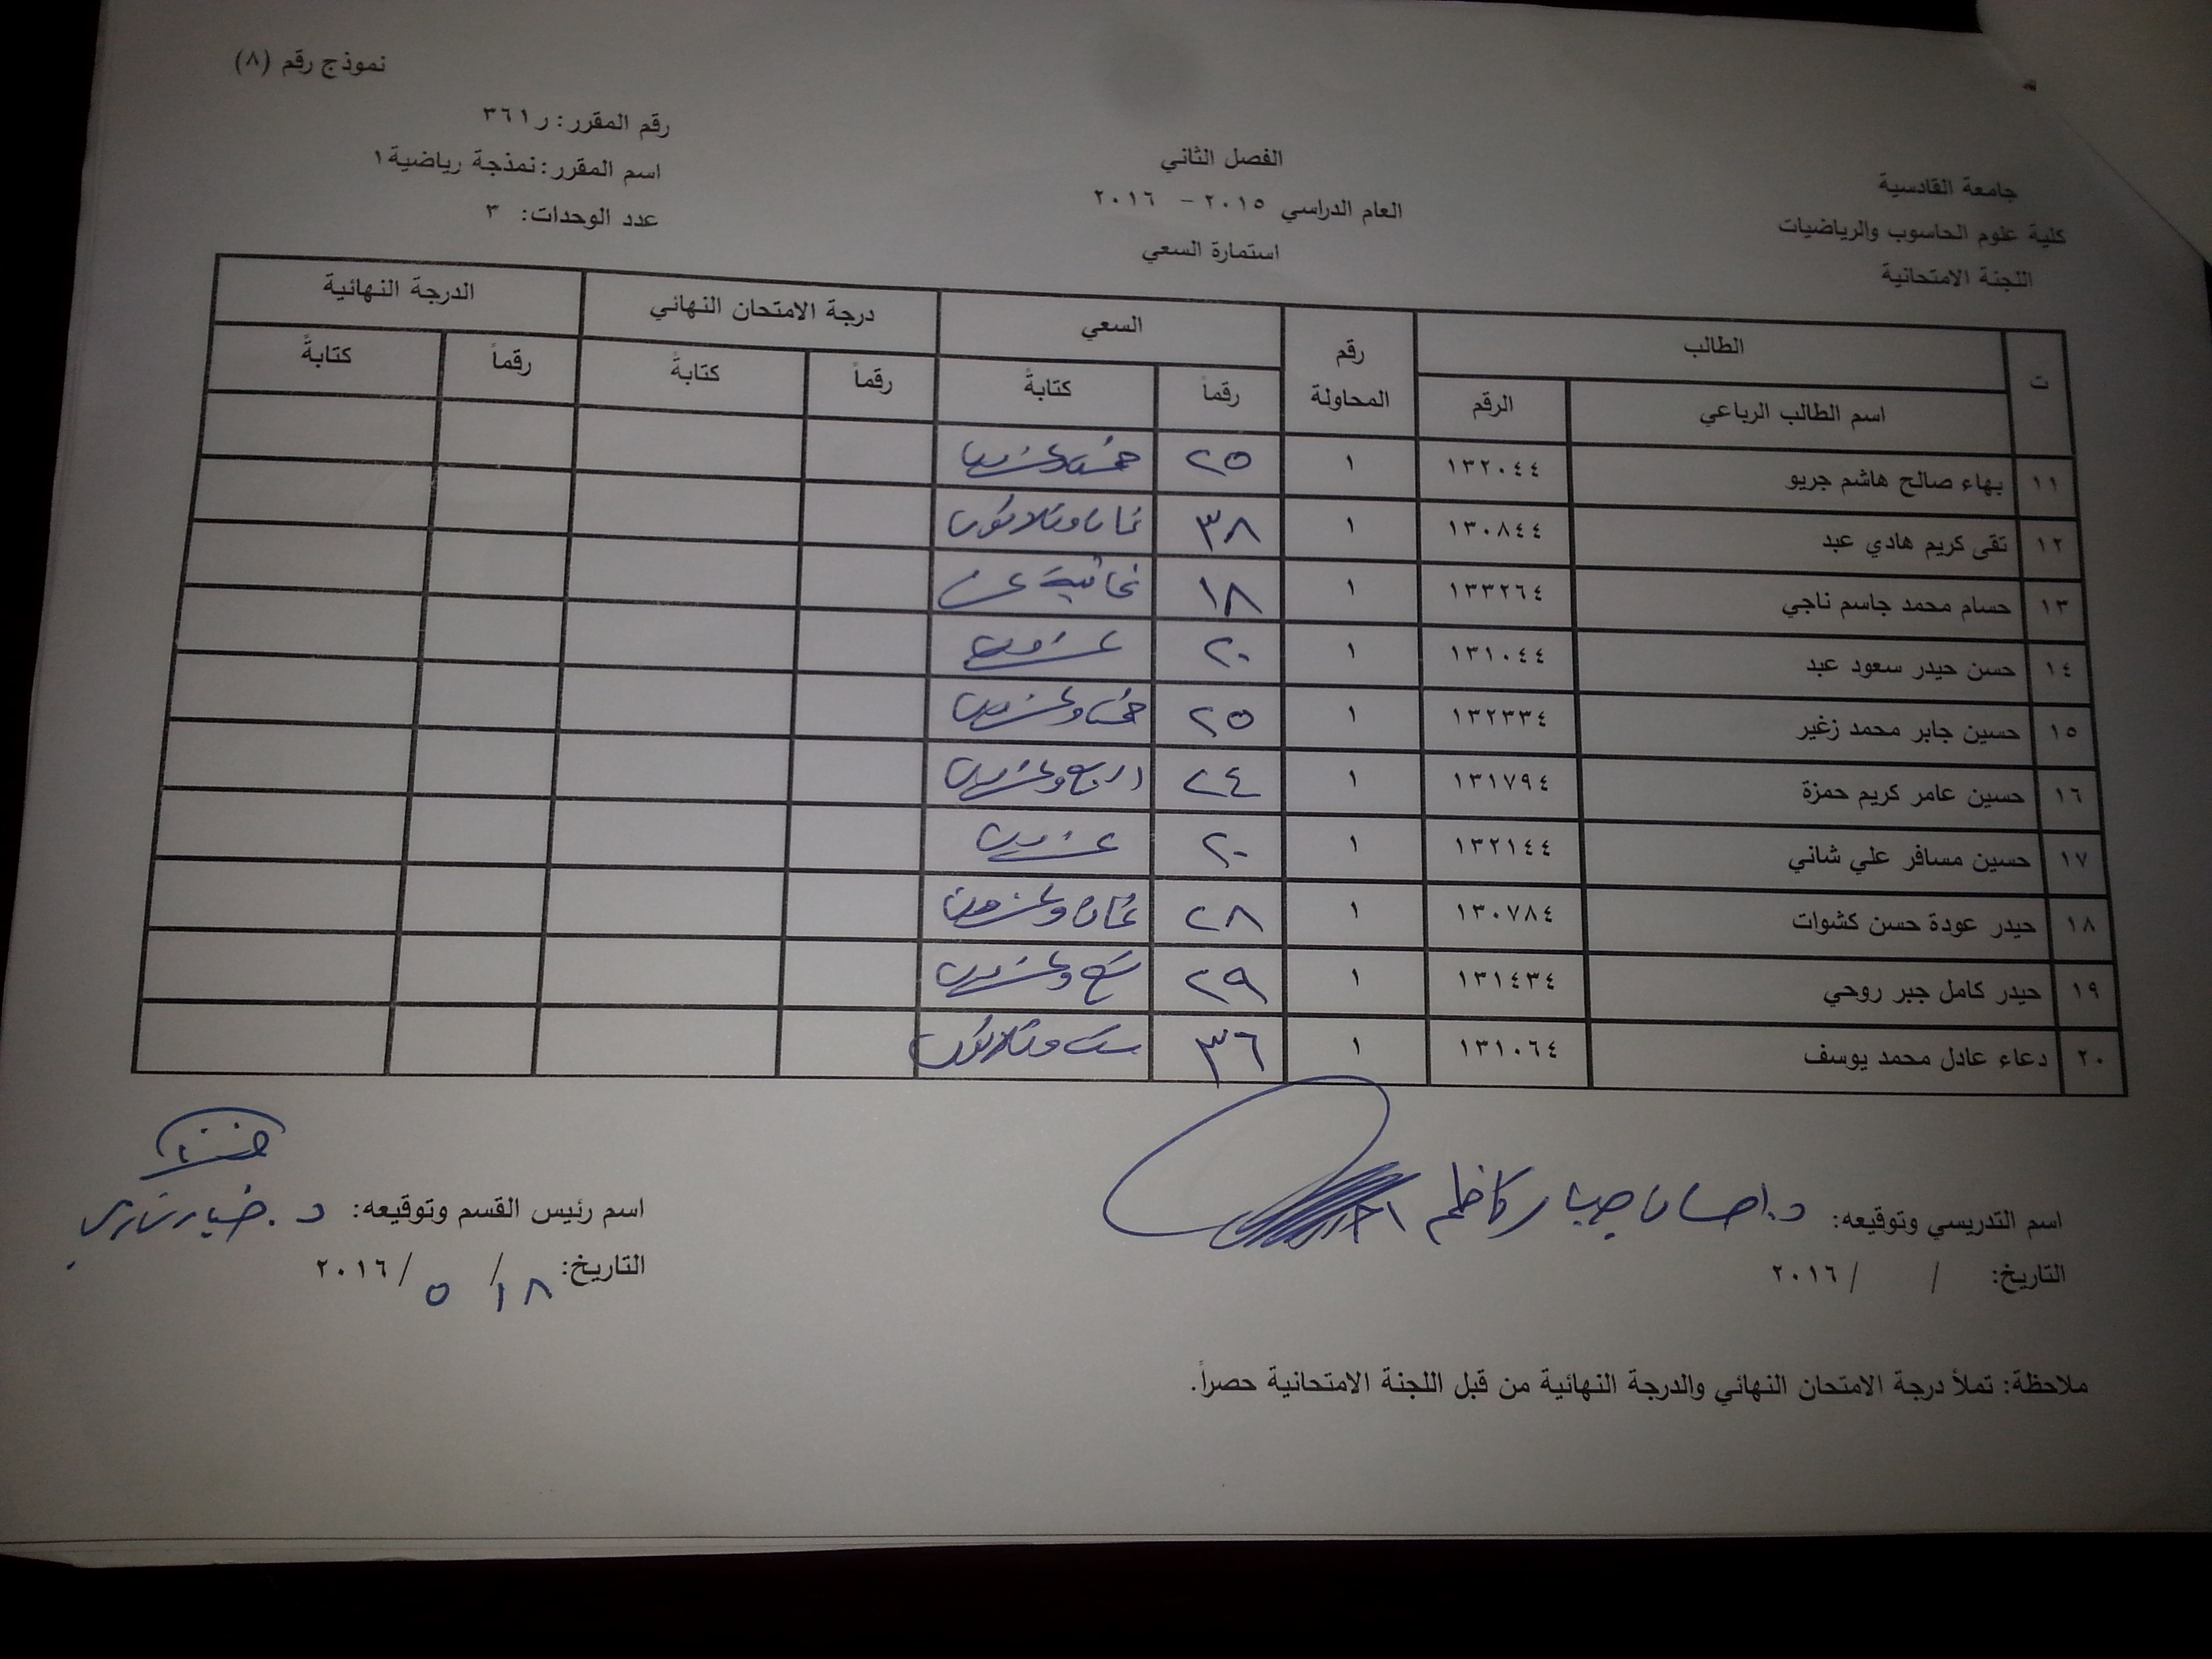 نموذج رقم (٨)
جامعة القادسية
كلية علوم الحاسوب والرياضيات
اللجنة الامتحانية
الفصل الثاني
العام الدراسي ٢٠١٥ - ٢٠١٦
استمارة السعي
رقم المقرر: ر٣٦١
اسم المقرر: نمذجة رياضية١
عدد الوحدات: ٣
ت الطالب رقم المحاولة السعي درجة الامتحان النهائي الدرجة النهائية
اسم الطالب الرباعي الرقم رقماً كتابةً رقماً كتابةً رقماً كتابةً
١١ بهاء صالح هاشم جريو ١٣٢٠٤٤ ١ ٢٥ خمس وعشرون
١٢ تقى كريم هادي عبد ١٣٠٨٤٤ ١ ٣٨ ثمان وثلاثون
١٣ حسام محمد جاسم ناجي ١٣٣٢٦٤ ١ ١٨ ثمانية عشر
١٤ حسن حيدر سعود عبد ١٣١٠٤٤ ١ ٢٠ عشرون
١٥ حسين جابر محمد زغير ١٣٢٣٣٤ ١ ٢٥ خمس وعشرون
١٦ حسين عامر كريم حمزة ١٣١٧٩٤ ١ ٢٤ اربع وعشرون
١٧ حسين مسافر علي شاني ١٣٢١٤٤ ١ ٢٠ عشرون
١٨ حيدر عودة حسن كشوات ١٣٠٧٨٤ ١ ٢٨ ثمان وعشرون
١٩ حيدر كامل جبر روحي ١٣١٤٣٤ ١ ٢٩ تسع وعشرون
٢٠ دعاء عادل محمد يوسف ١٣١٠٦٤ ١ ٣٦ ست وثلاثون
اسم التدريسي وتوقيعه: د. احسان جبار كاظم
التاريخ: / / ٢٠١٦
اسم رئيس القسم وتوقيعه: د.
التاريخ: ١٨ / ٥ / ٢٠١٦
ملاحظة: تملأ درجة الامتحان النهائي والدرجة النهائية من قبل اللجنة الامتحانية حصراً.